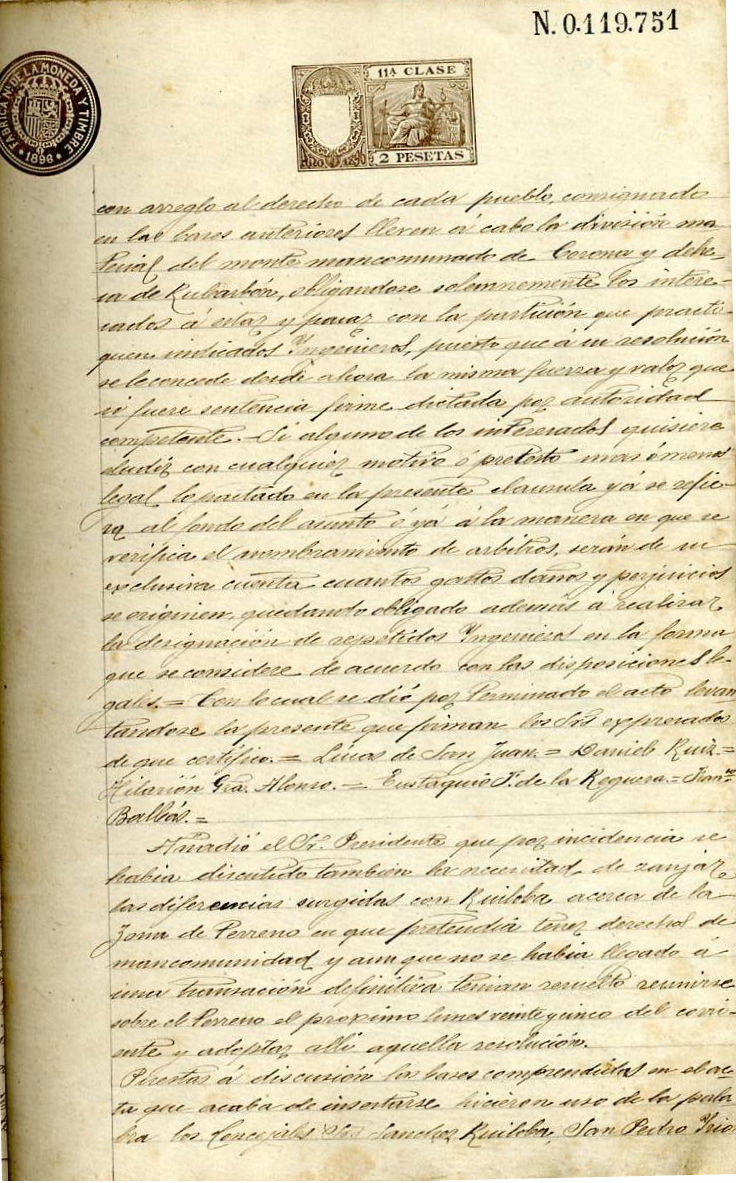 N. 0.119.751
FÁBRICA NL. DE LA MONEDA Y TIMBRE
1896
11ª CLASE
2 PESETAS
con arreglo al derecho de cada pueblo, consignado
en las bases anteriores lleven á cabo la división ma
terial del monte mancomunado de Corona y dehe-
sa de Rubarbón, obligandose solemnemente los intere-
sados á estar y pasar con la partición que practi-
quen indicados Yngenieros, puesto que á su resolución
se le concede desde ahora la misma fuerza y valor que
si fuere sentencia firme dictada por autoridad
competente.- Si alguno de los interesados quisiere
eludir con cualquier motivo ó pretesto mas ó menos
legal lo pactado en la presente clausula yá se refie-
ra al fondo del asunto ó yá á la manera en que se
verifica el nombramiento de arbitros, serán de su
exclusiva cuenta cuantos gastos daños y perjuicios
se originen, quedando obligado además á realizar
la designación de repetidos Yngenieros en la forma
que se considere de acuerdo con las disposiciones le-
gales.= Con lo cual se dió por terminado el acto levan
tandose la presente que firman los Srs expresados
de que certifico.= Lucas de San Juan.= Daniel Ruiz.=
Hilarión Gra. Alonso.= Eustaquio F. de la Reguera.= Franco
Balbás.=
Añadió el Sr. Presidente que por incidencia se
habia discutido tambien la necesitad de zanjar
las diferencias surgidas con Ruiloba acerca de la
zona de terreno en que pretendia tener derechos de
mancomunidad y aun que no se habia llegado á
una transación definitiva tenian resuelto reunirse
sobre el terreno el proximo lunes veinte y cinco del corri-
ente y adoptar alli aquella resolución.
Puestas á discusión las bases comprendidas en el ac-
ta que acaba de insertarse hicieron uso de la pala
bra los Concejales Srs Sanchez Ruiloba, San Pedro, Yrio